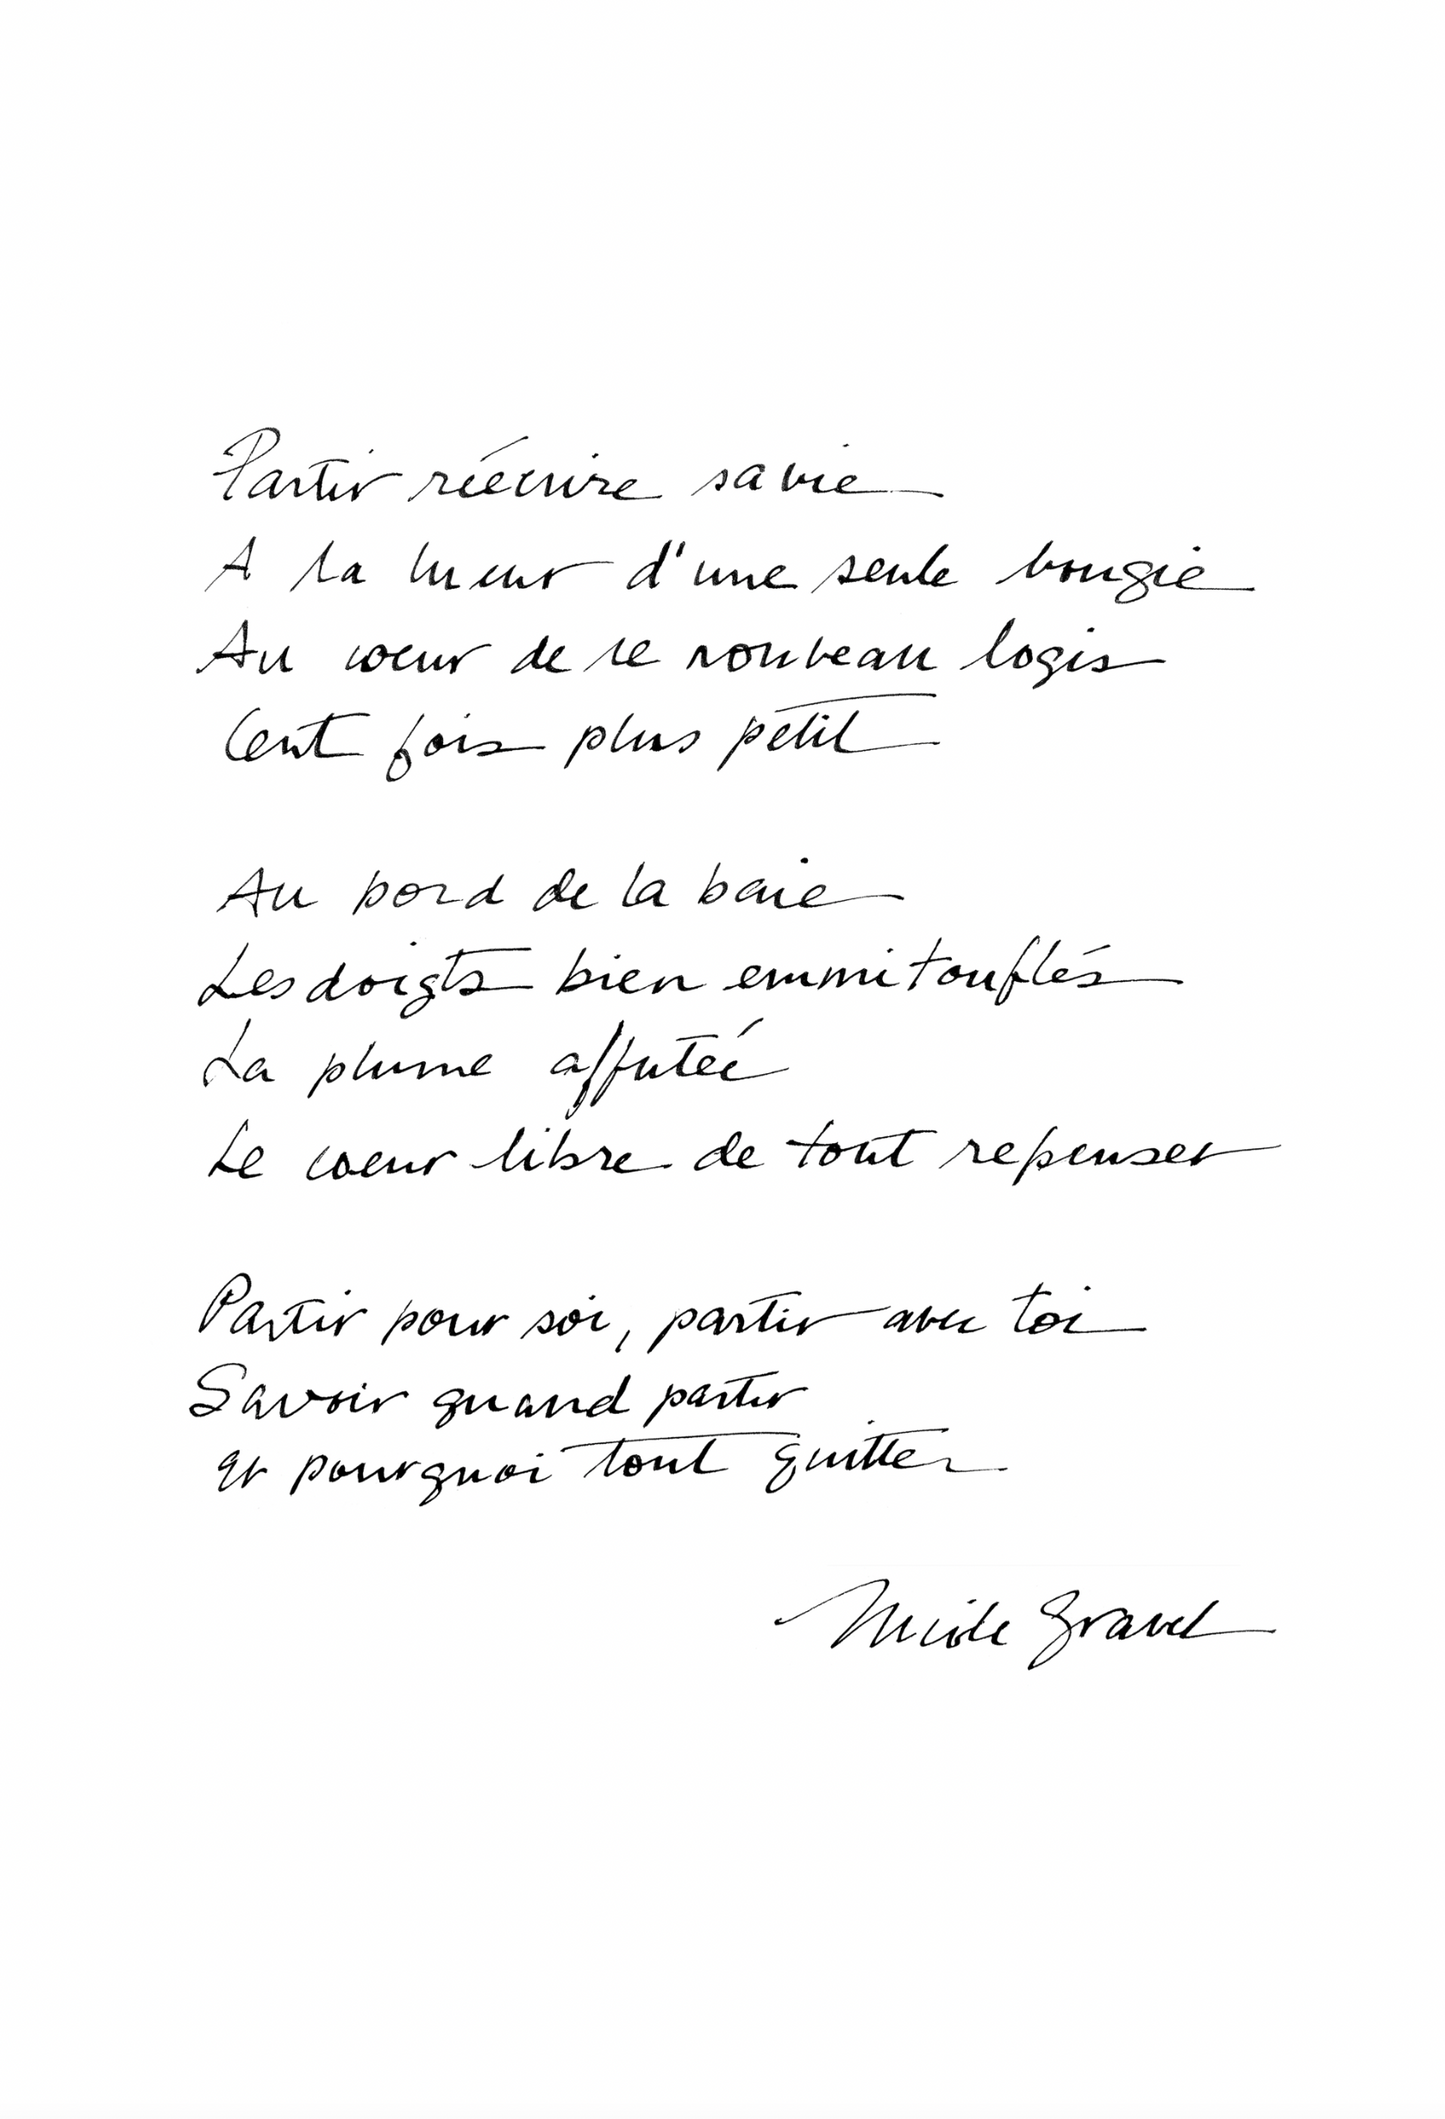 Partir réécrire sa vie
A la lueur d'une seule bougie
Au coeur de ce nouveau logis
Cent fois plus petit
Au bord de la baie
Les doigts bien emmitouflés
La plume affutée
Le coeur libre de tout repenser
Partir pour soi, partir avec toi
Savoir quand partir
et pourquoi tout quitter
Nicole Gravel